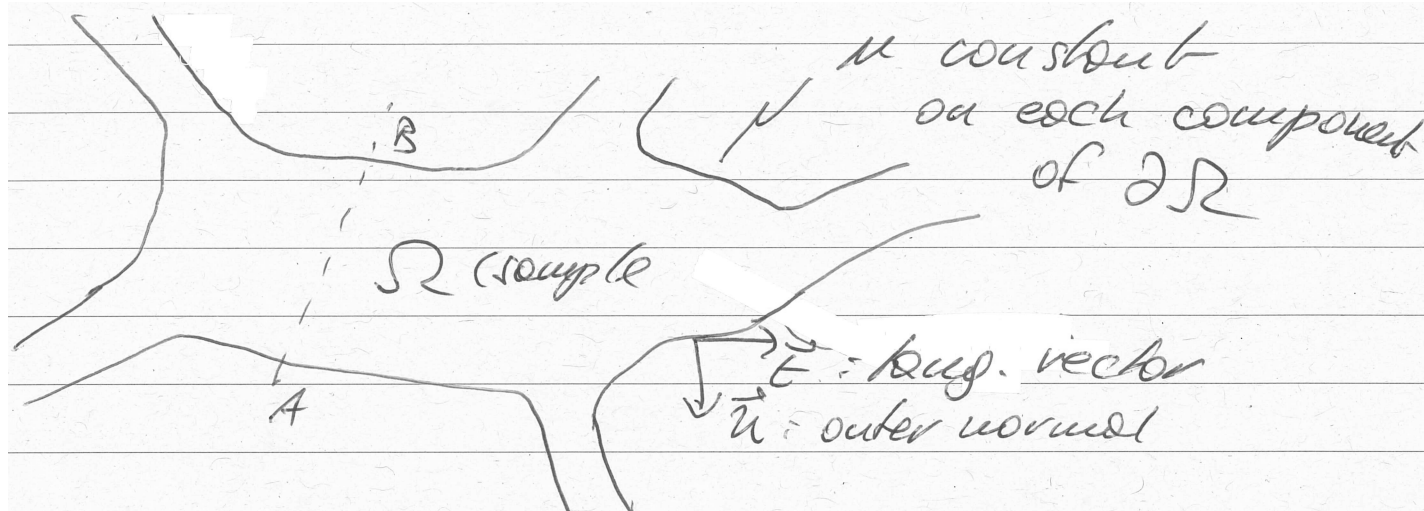 μ constant
on each component
of ∂Ω
μ
B
Ω (sample
A
t⃗ : tang. vector
n⃗ : outer normal